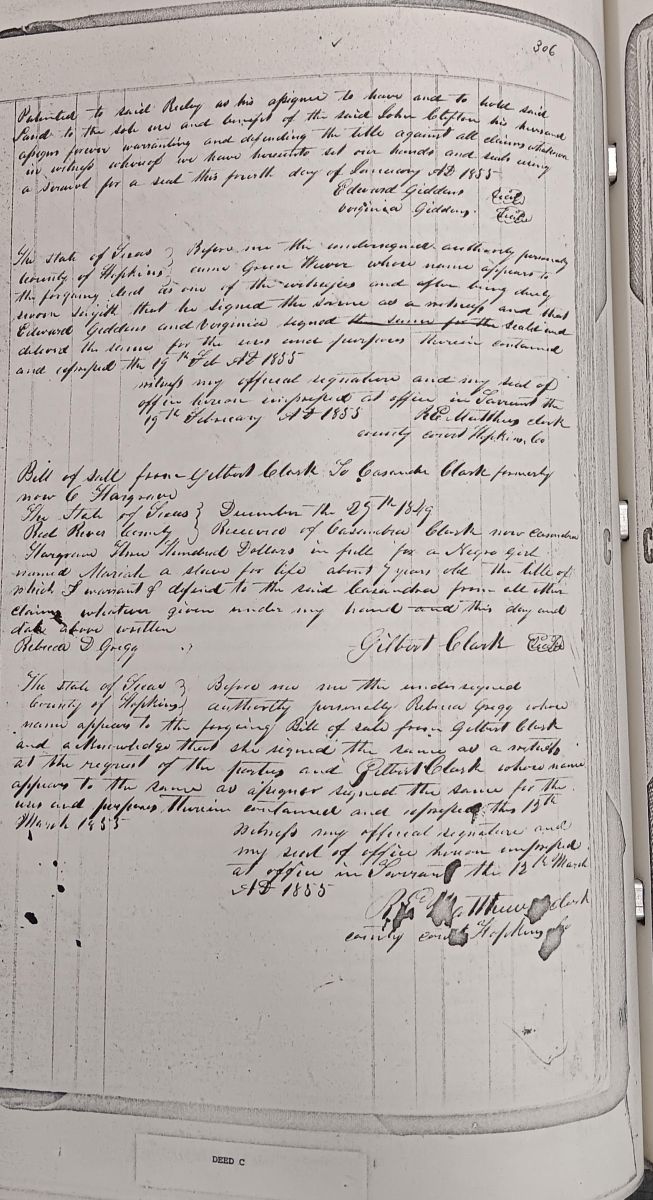 306
Patented to said Riley as his assignee to have and to hold said
Land to the sole use and benefit of the said John Clifton his heirs and
assigns forever warranting and defending the title against all claims whatsoever
in witness whereof we have hereunto set our hands and seals using
a scrawl for a seal this fourth day of January AD 1855
Edward Giddens Seal
Virginia Giddens Seal
The State of Texas } Before me the undersigned authority personally
County of Hopkins } came Green Weaver whose name appears to
the forgoing deed as one of the witnesses and after being duly
sworn sayeth that he signed the same as a witness and that
Edward Giddens and Virginia signed the same for the seald and
deliverd the same for the uses and purposes therein contained
and expressed the 19th Feb AD 1855
witness my official signature and my seal of
office hereon impressed at office in Tarrant the
19th February AD 1855 R E Matthews clerk
county court Hopkins Co
Bill of Sale from Gilbert Clark To Casandra Clark formerly
now C Hargrave
The State of Texas } December the 29th 1849
Red River County } Received of Casandra Clark now Casandra
Hargrave Three Hundred Dollars in full for a Negro Girl
named Mariah a slave for life about 7 years old the title of
which I warrant & defend to the said Casandra from all other
claims whatever given under my hand and this day and
date above written
Rebecca D Gregg Gilbert Clark Seal
The State of Texas } Before me me the undersigned
County of Hopkins } authority personally Rebeca Gregg whose
name appears to the forgoing Bill of sale from Gilbert Clark
and acknowledge that she signed the same as a witness
at the request of the parties and Gilbert Clark whose name
appears to the same as assignor signed the same for the
uses and purposes therein contained and expressed this 12th
March 1855
witness my official signature and
my seal of office hereon impressed
at office in Tarrant the 12th March
AD 1855
R E Matthews clerk
county court Hopkins Co
DEED C